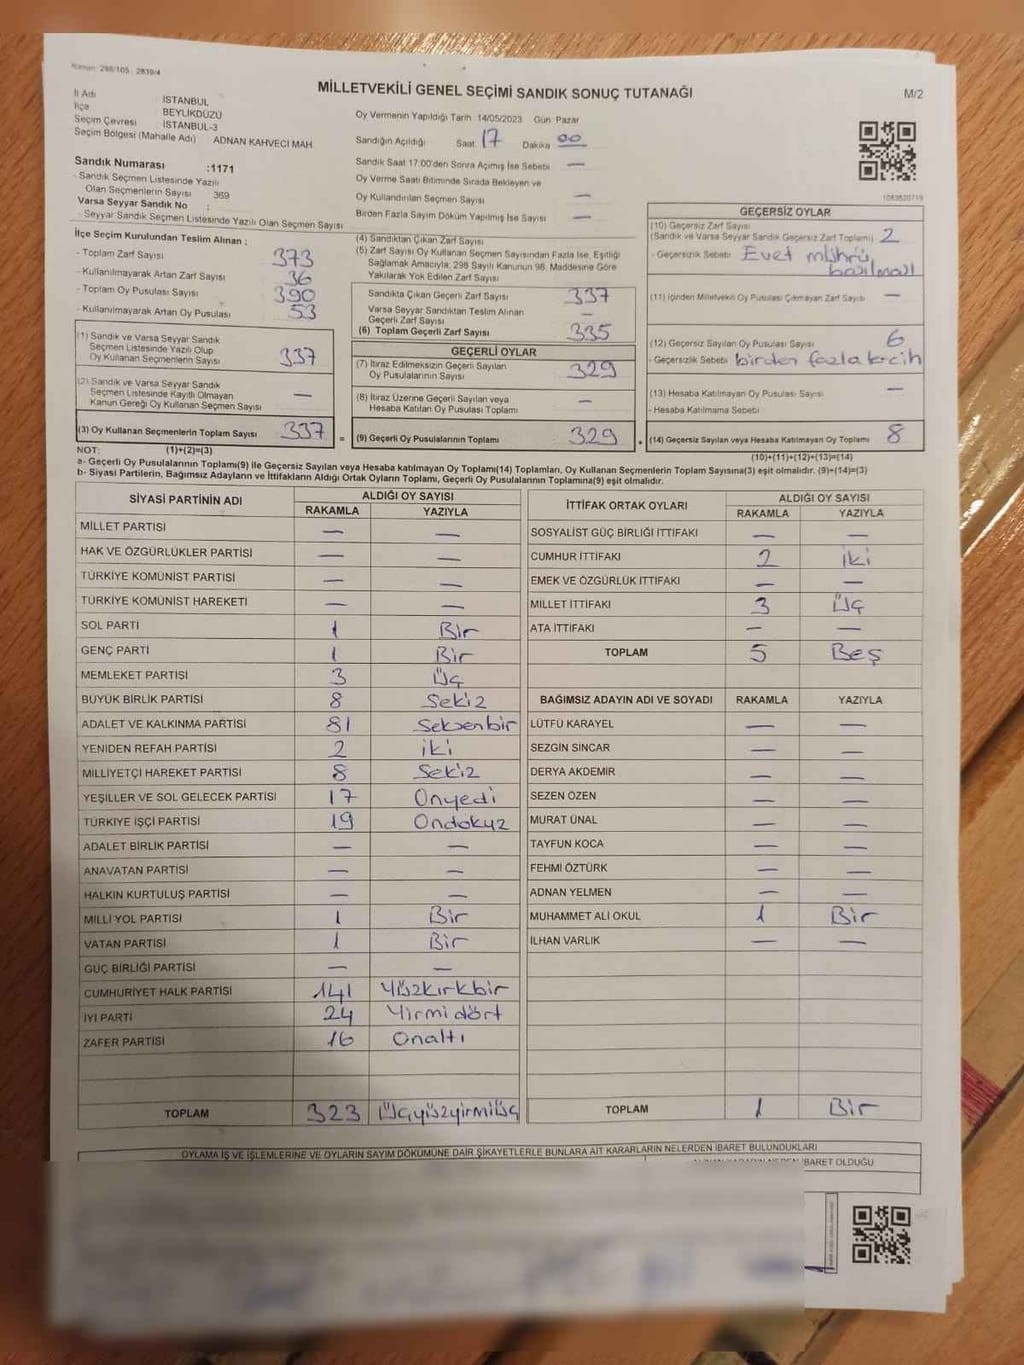 Kanun: 298/105 2839/4
MİLLETVEKİLİ GENEL SEÇİMİ SANDIK SONUÇ TUTANAĞI
M/2
İl Adı İSTANBUL
İlçe BEYLİKDÜZÜ
Seçim Çevresi İSTANBUL-3
Seçim Bölgesi (Mahalle Adı) ADNAN KAHVECİ MAH
Sandık Numarası :1171
- Sandık Seçmen Listesinde Yazılı
Olan Seçmenlerin Sayısı 369
Varsa Seyyar Sandık No :
- Seyyar Sandık Seçmen Listesinde Yazılı Olan Seçmen Sayısı
İlçe Seçim Kurulundan Teslim Alınan :
- Toplam Zarf Sayısı 373
- Kullanılmayarak Artan Zarf Sayısı 36
- Toplam Oy Pusulası Sayısı 390
- Kullanılmayarak Artan Oy Pusulası 53
(1) Sandık ve Varsa Seyyar Sandık
Seçmen Listesinde Yazılı Olup
Oy Kullanan Seçmenlerin Sayısı 337
(2) Sandık ve Varsa Seyyar Sandık
Seçmen Listesinde Kayıtlı Olmayan
Kanun Gereği Oy Kullanan Seçmen Sayısı —
(3) Oy Kullanan Seçmenlerin Toplam Sayısı 337 =
Oy Vermenin Yapıldığı Tarih 14/05/2023 Gün Pazar
Sandığın Açıldığı Saat. 17 Dakika 00
Sandık Saat 17.00'den Sonra Açımış İse Sebebi —
Oy Verme Saati Bitiminde Sırada Bekleyen ve
Oy Kullandırılan Seçmen Sayısı —
Birden Fazla Sayım Döküm Yapılmış İse Sayısı —
(4) Sandıktan Çıkan Zarf Sayısı
(5) Zarf Sayısı Oy Kullanan Seçmen Sayısından Fazla İse, Eşitliği
Sağlamak Amacıyla, 298 Sayılı Kanunun 98. Maddesine Göre
Yakılarak Yok Edilen Zarf Sayısı
Sandıkta Çıkan Geçerli Zarf Sayısı 337
Varsa Seyyar Sandıktan Teslim Alınan
Geçerli Zarf Sayısı —
(6) Toplam Geçerli Zarf Sayısı 335
GEÇERLİ OYLAR
(7) İtiraz Edilmeksizin Geçerli Sayılan
Oy Pusulalarının Sayısı 329
(8) İtiraz Üzerine Geçerli Sayılan veya
Hesaba Katılan Oy Pusulası Toplamı —
(9) Geçerli Oy Pusulalarının Toplamı 329 +
1083520719
GEÇERSİZ OYLAR
(10) Geçersiz Zarf Sayısı
(Sandık ve Varsa Seyyar Sandık Geçersiz Zarf Toplamı) 2
- Geçersizlik Sebebi Evet mührü
basılmalı
(11) İçinden Milletvekili Oy Pusulası Çıkmayan Zarf Sayısı —
(12) Geçersiz Sayılan Oy Pusulası Sayısı 6
- Geçersizlik Sebebi birden fazla tercih
(13) Hesaba Katılmayan Oy Pusulası Sayısı —
- Hesaba Katılmama Sebebi
(14) Geçersiz Sayılan veya Hesaba Katılmayan Oy Toplamı 8
NOT: (1)+(2)=(3) (10)+(11)+(12)+(13)=(14)
a- Geçerli Oy Pusulalarının Toplamı(9) ile Geçersiz Sayılan veya Hesaba katılmayan Oy Toplamı(14) Toplamları, Oy Kullanan Seçmenlerin Toplam Sayısına(3) eşit olmalıdır. (9)+(14)=(3)
b- Siyasi Partilerin, Bağımsız Adayların ve İttifakların Aldığı Ortak Oyların Toplamı, Geçerli Oy Pusulalarının Toplamına(9) eşit olmalıdır.
SİYASİ PARTİNİN ADI ALDIĞI OY SAYISI
RAKAMLA YAZIYLA
MİLLET PARTİSİ — —
HAK VE ÖZGÜRLÜKLER PARTİSİ — —
TÜRKİYE KOMÜNİST PARTİSİ — —
TÜRKİYE KOMÜNİST HAREKETİ — —
SOL PARTİ 1 Bir
GENÇ PARTİ 1 Bir
MEMLEKET PARTİSİ 3 Üç
BÜYÜK BİRLİK PARTİSİ 8 Sekiz
ADALET VE KALKINMA PARTİSİ 81 Seksenbir
YENİDEN REFAH PARTİSİ 2 iki
MİLLİYETÇİ HAREKET PARTİSİ 8 Sekiz
YEŞİLLER VE SOL GELECEK PARTİSİ 17 Onyedi
TÜRKİYE İŞÇİ PARTİSİ 19 Ondokuz
ADALET BİRLİK PARTİSİ — —
ANAVATAN PARTİSİ — —
HALKIN KURTULUŞ PARTİSİ — —
MİLLİ YOL PARTİSİ 1 Bir
VATAN PARTİSİ 1 Bir
GÜÇ BİRLİĞİ PARTİSİ — —
CUMHURİYET HALK PARTİSİ 141 Yüzkırkbir
İYİ PARTİ 24 Yirmidört
ZAFER PARTİSİ 16 Onaltı
TOPLAM 323 Üçyüzyirmiüç
İTTİFAK ORTAK OYLARI ALDIĞI OY SAYISI
RAKAMLA YAZIYLA
SOSYALİST GÜÇ BİRLİĞİ İTTİFAKI — —
CUMHUR İTTİFAKI 2 iki
EMEK VE ÖZGÜRLÜK İTTİFAKI — —
MİLLET İTTİFAKI 3 Üç
ATA İTTİFAKI — —
TOPLAM 5 Beş
BAĞIMSIZ ADAYIN ADI VE SOYADI RAKAMLA YAZIYLA
LÜTFÜ KARAYEL — —
SEZGİN SİNCAR — —
DERYA AKDEMİR — —
SEZEN ÖZEN — —
MURAT ÜNAL — —
TAYFUN KOCA — —
FEHMİ ÖZTÜRK — —
ADNAN YELMEN — —
MUHAMMET ALİ OKUL 1 Bir
İLHAN VARLIK — —
TOPLAM 1 Bir
OYLAMA İŞ VE İŞLEMLERİNE VE OYLARIN SAYIM DÖKÜMÜNE DAİR ŞİKAYETLERLE BUNLARA AİT KARARLARIN NELERDEN İBARET BULUNDUKLARI
İBARET OLDUĞU